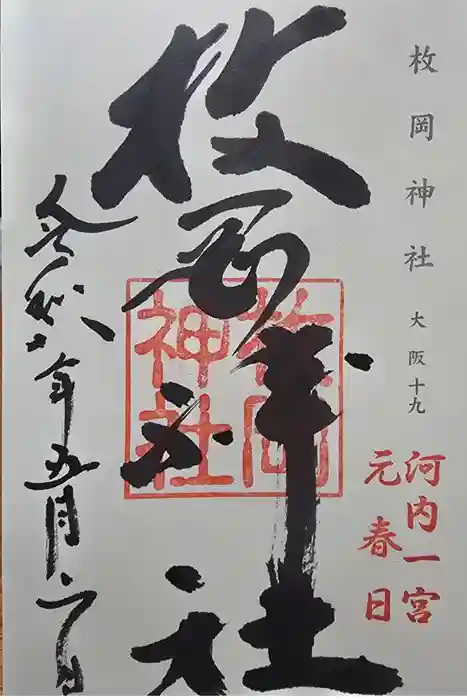 枚岡神社 大阪十九
河内一宮
元春日
枚岡神社
枚岡
神社
令和八年五月六日